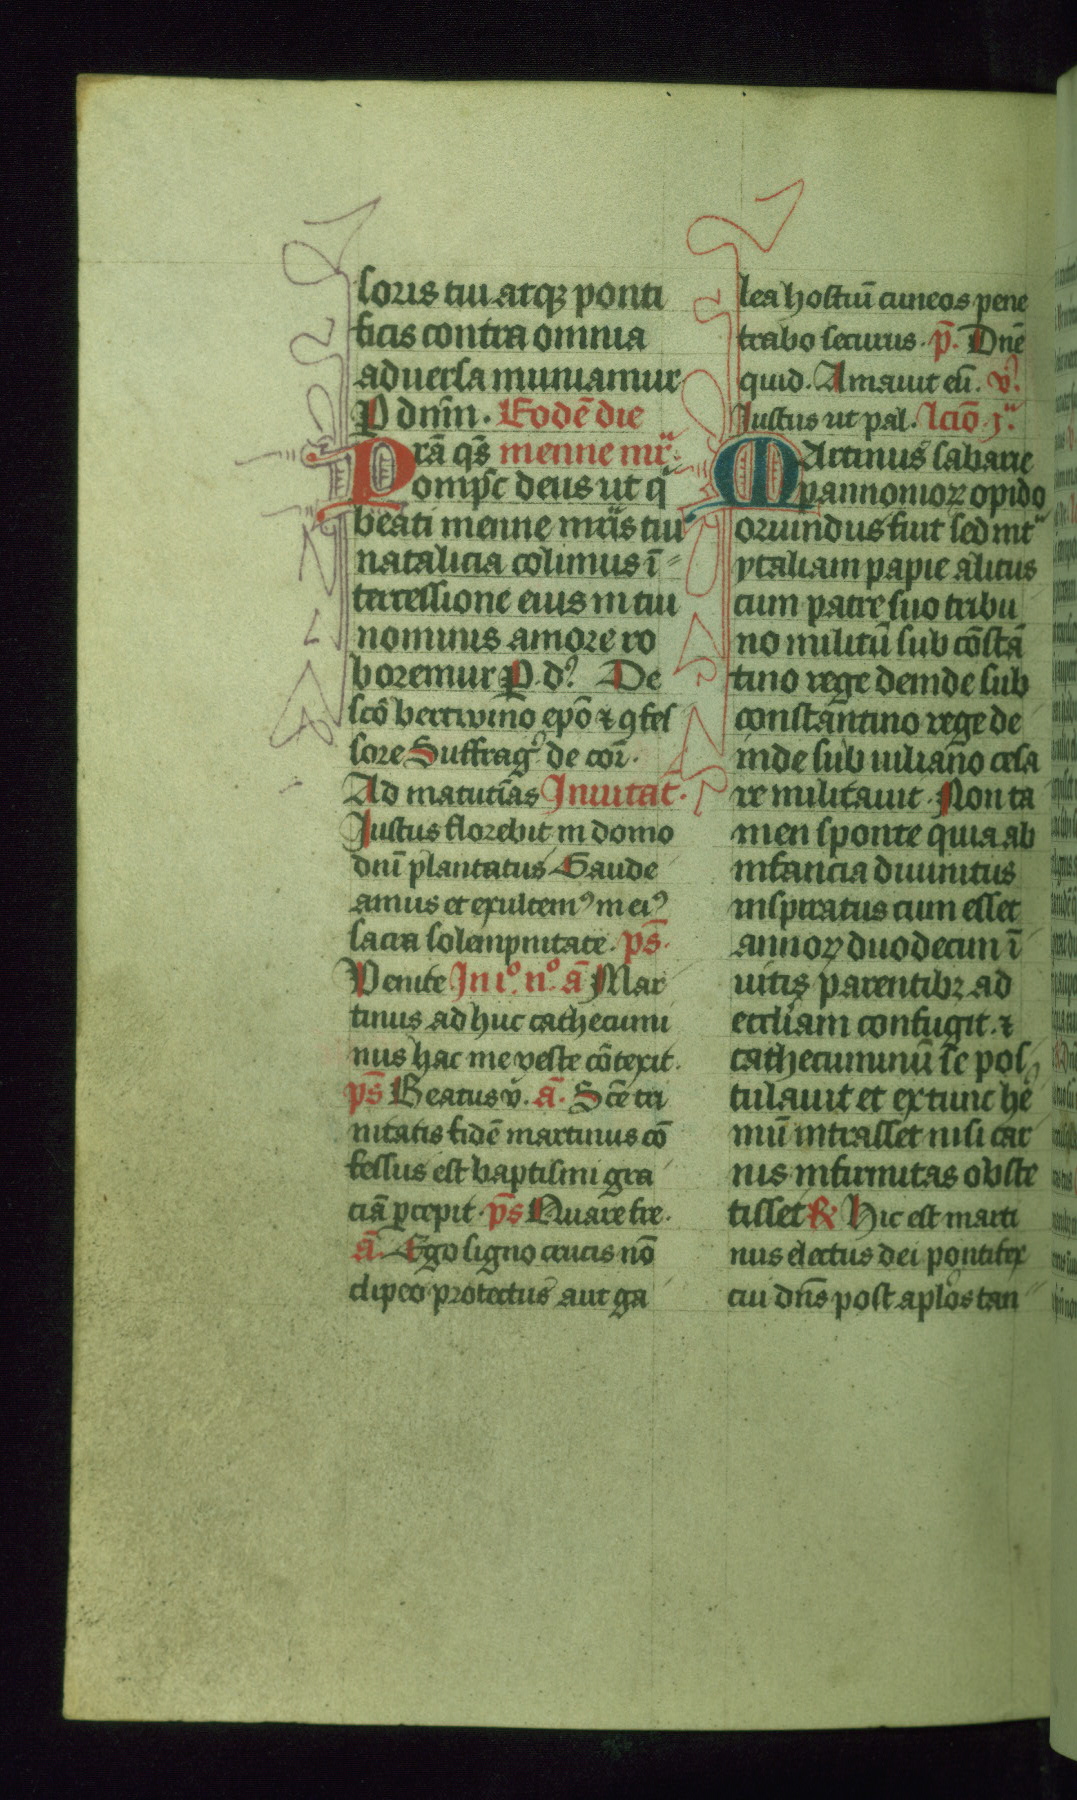 soris tui atqꝫ ponti
ficis contra omnia
aduersa muniamur
P dnm̄. Eodē die
Prā qs̄ menne mr̄.
omps deus ut q
beati menne mr̄is tui
natalicia colimus ī
tercessione eius in tui
nominis amore ro
boremur P d. De
scō bertwino epō ⁊ ꝯfes
sore Suffrag de cōi.
Ad matutīas Inuitat̄.
Justus florebit in domo
dnī plantatus Gaude
amus et exultemꝰ in eiꝰ
sacra solempnitate. ps̄.
Venite In i° n° ā Mar
tinus ad huc cathecumi
nus hac me veste cōtexit.
ps̄ Beatus v. ā. Scē tri
nitatis fidē martinus cō
fessus est baptismi gra
ciā ꝑcepit. ps̄ Quare fre.
ā. Ego signo crucis nō
clipeo protectus aut ga
lea hostiū cuneos pene
trabo securus. p̄. Dnē
quid. Amauit eū. v.
Justus ut pal. lcīō j.
Martinus sabarie
pannonioꝝ opido
oriundus fuit sed int
ytaliam papie alitus
cum patre suo tribu
no militū sub cōstā
tino rege deinde sub
constantino rege de
inde sub iuliano cesa
re militauit. Non ta
men sponte quia ab
infancia diuinitus
inspiratus cum esset
annoꝝ duodecim ī
uitis parentibꝫ ad
eccliam confugit. ⁊
cathecuminū se pos
tulauit et extunc he
mū intrasset nisi car
nis infirmitas obste
tisset ℟ Hic est marti
nus electus dei pontifex
cui dns̄ post aplos tan